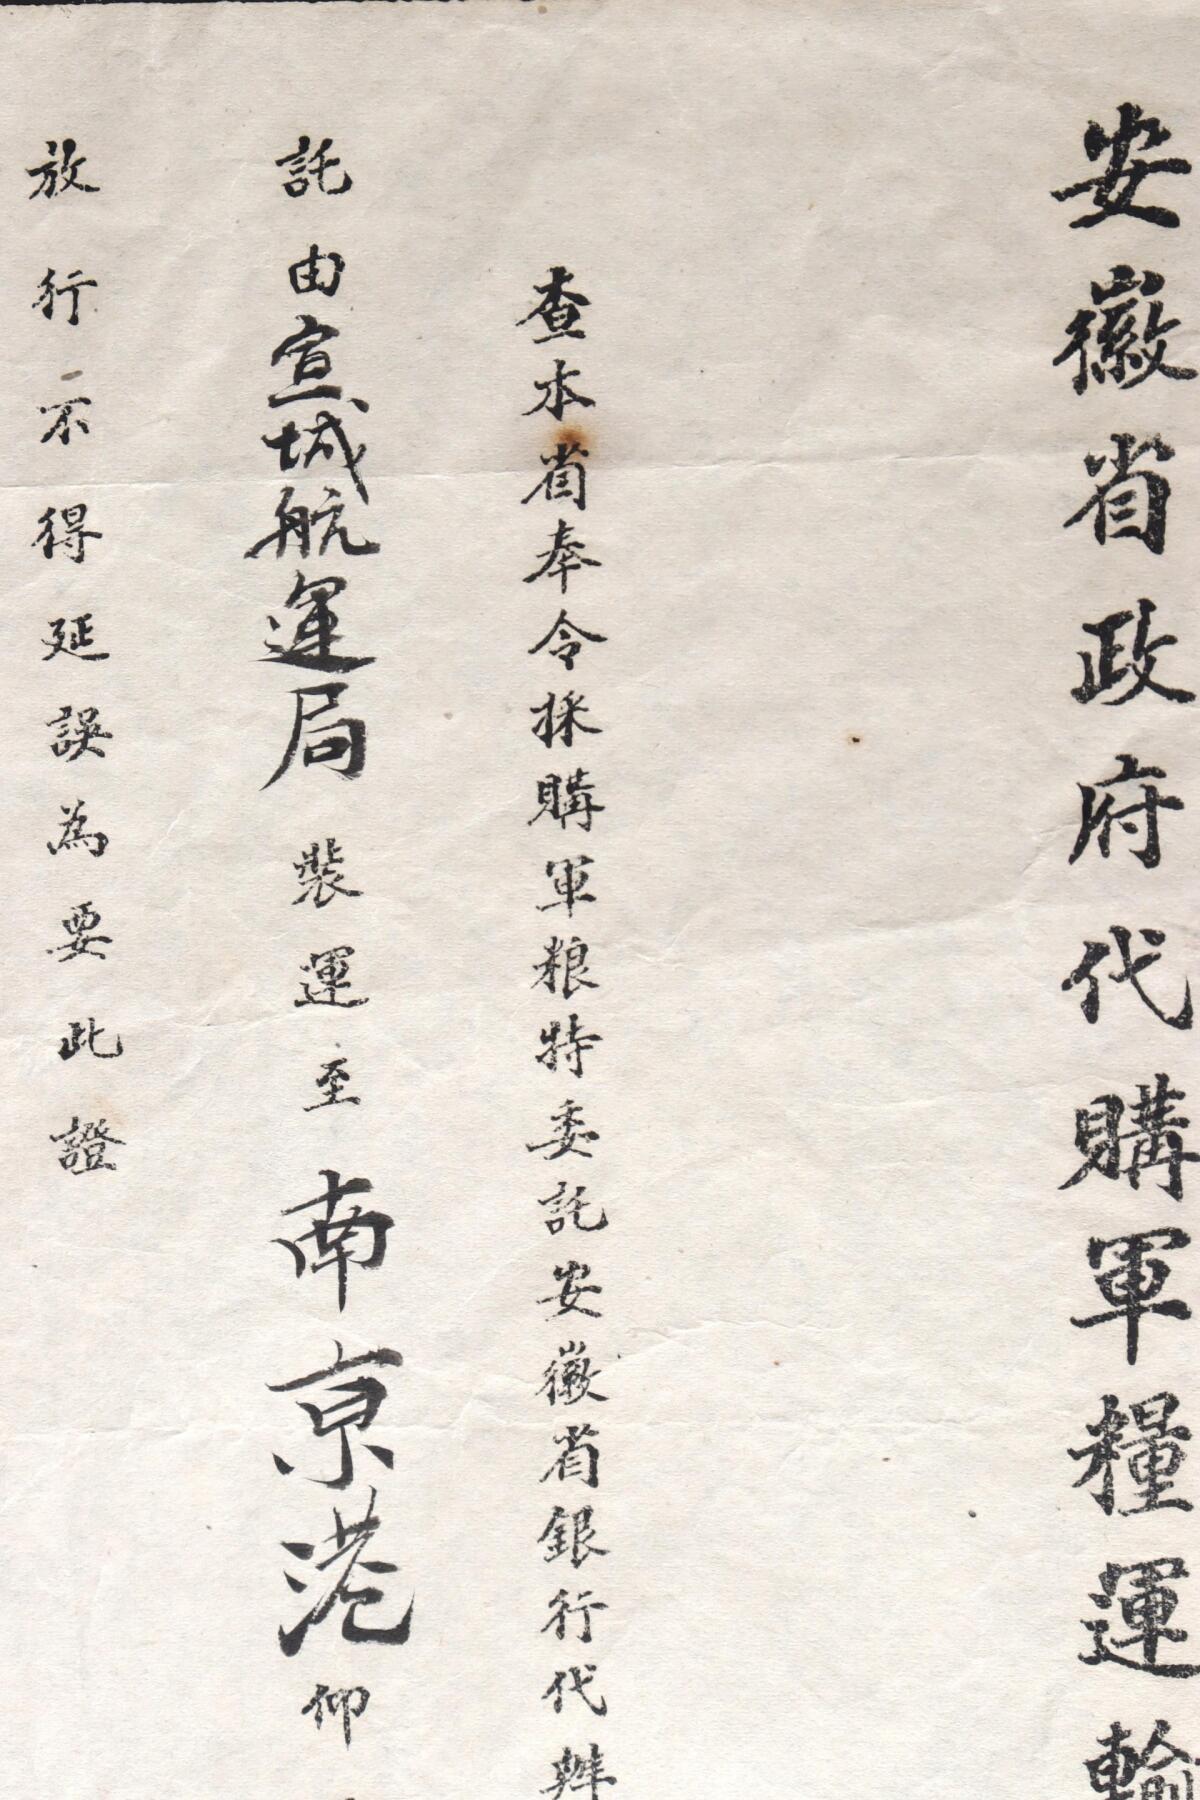 安徽省政府代購軍糧運輸
查本省奉令採購軍粮特委託安徽省銀行代辦
託由宣城航運局裝運至南京港仰
放行不得延誤為要此證